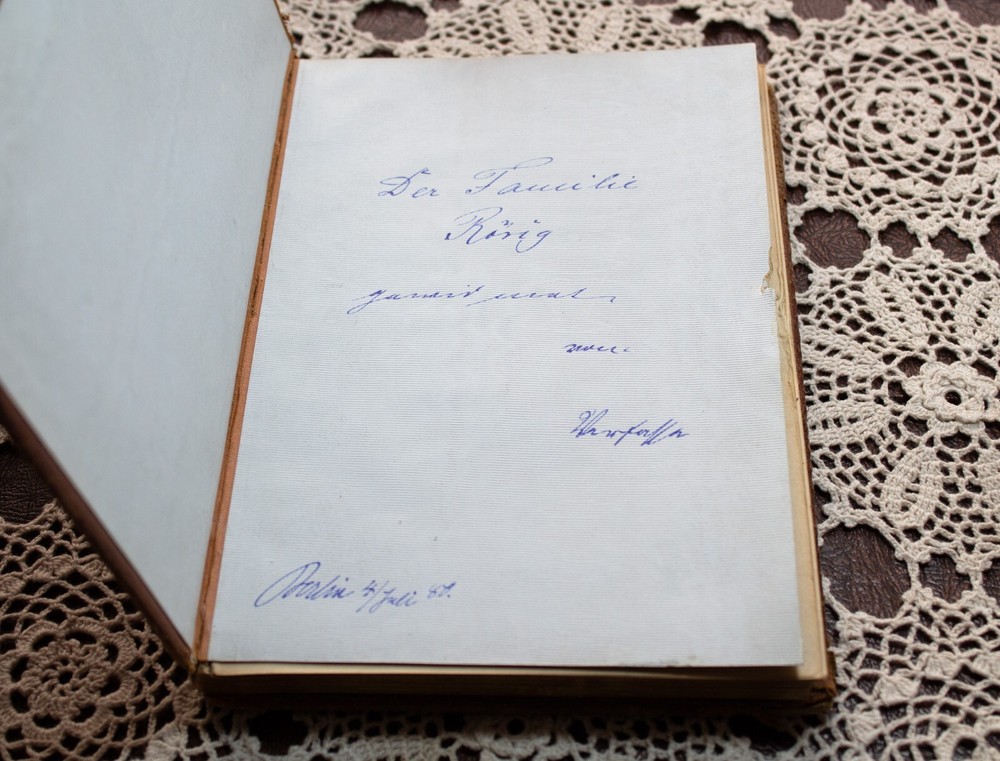 Der Familie
Rörig
gewidmet
vom
Verfasser
Berlin 4/Juli